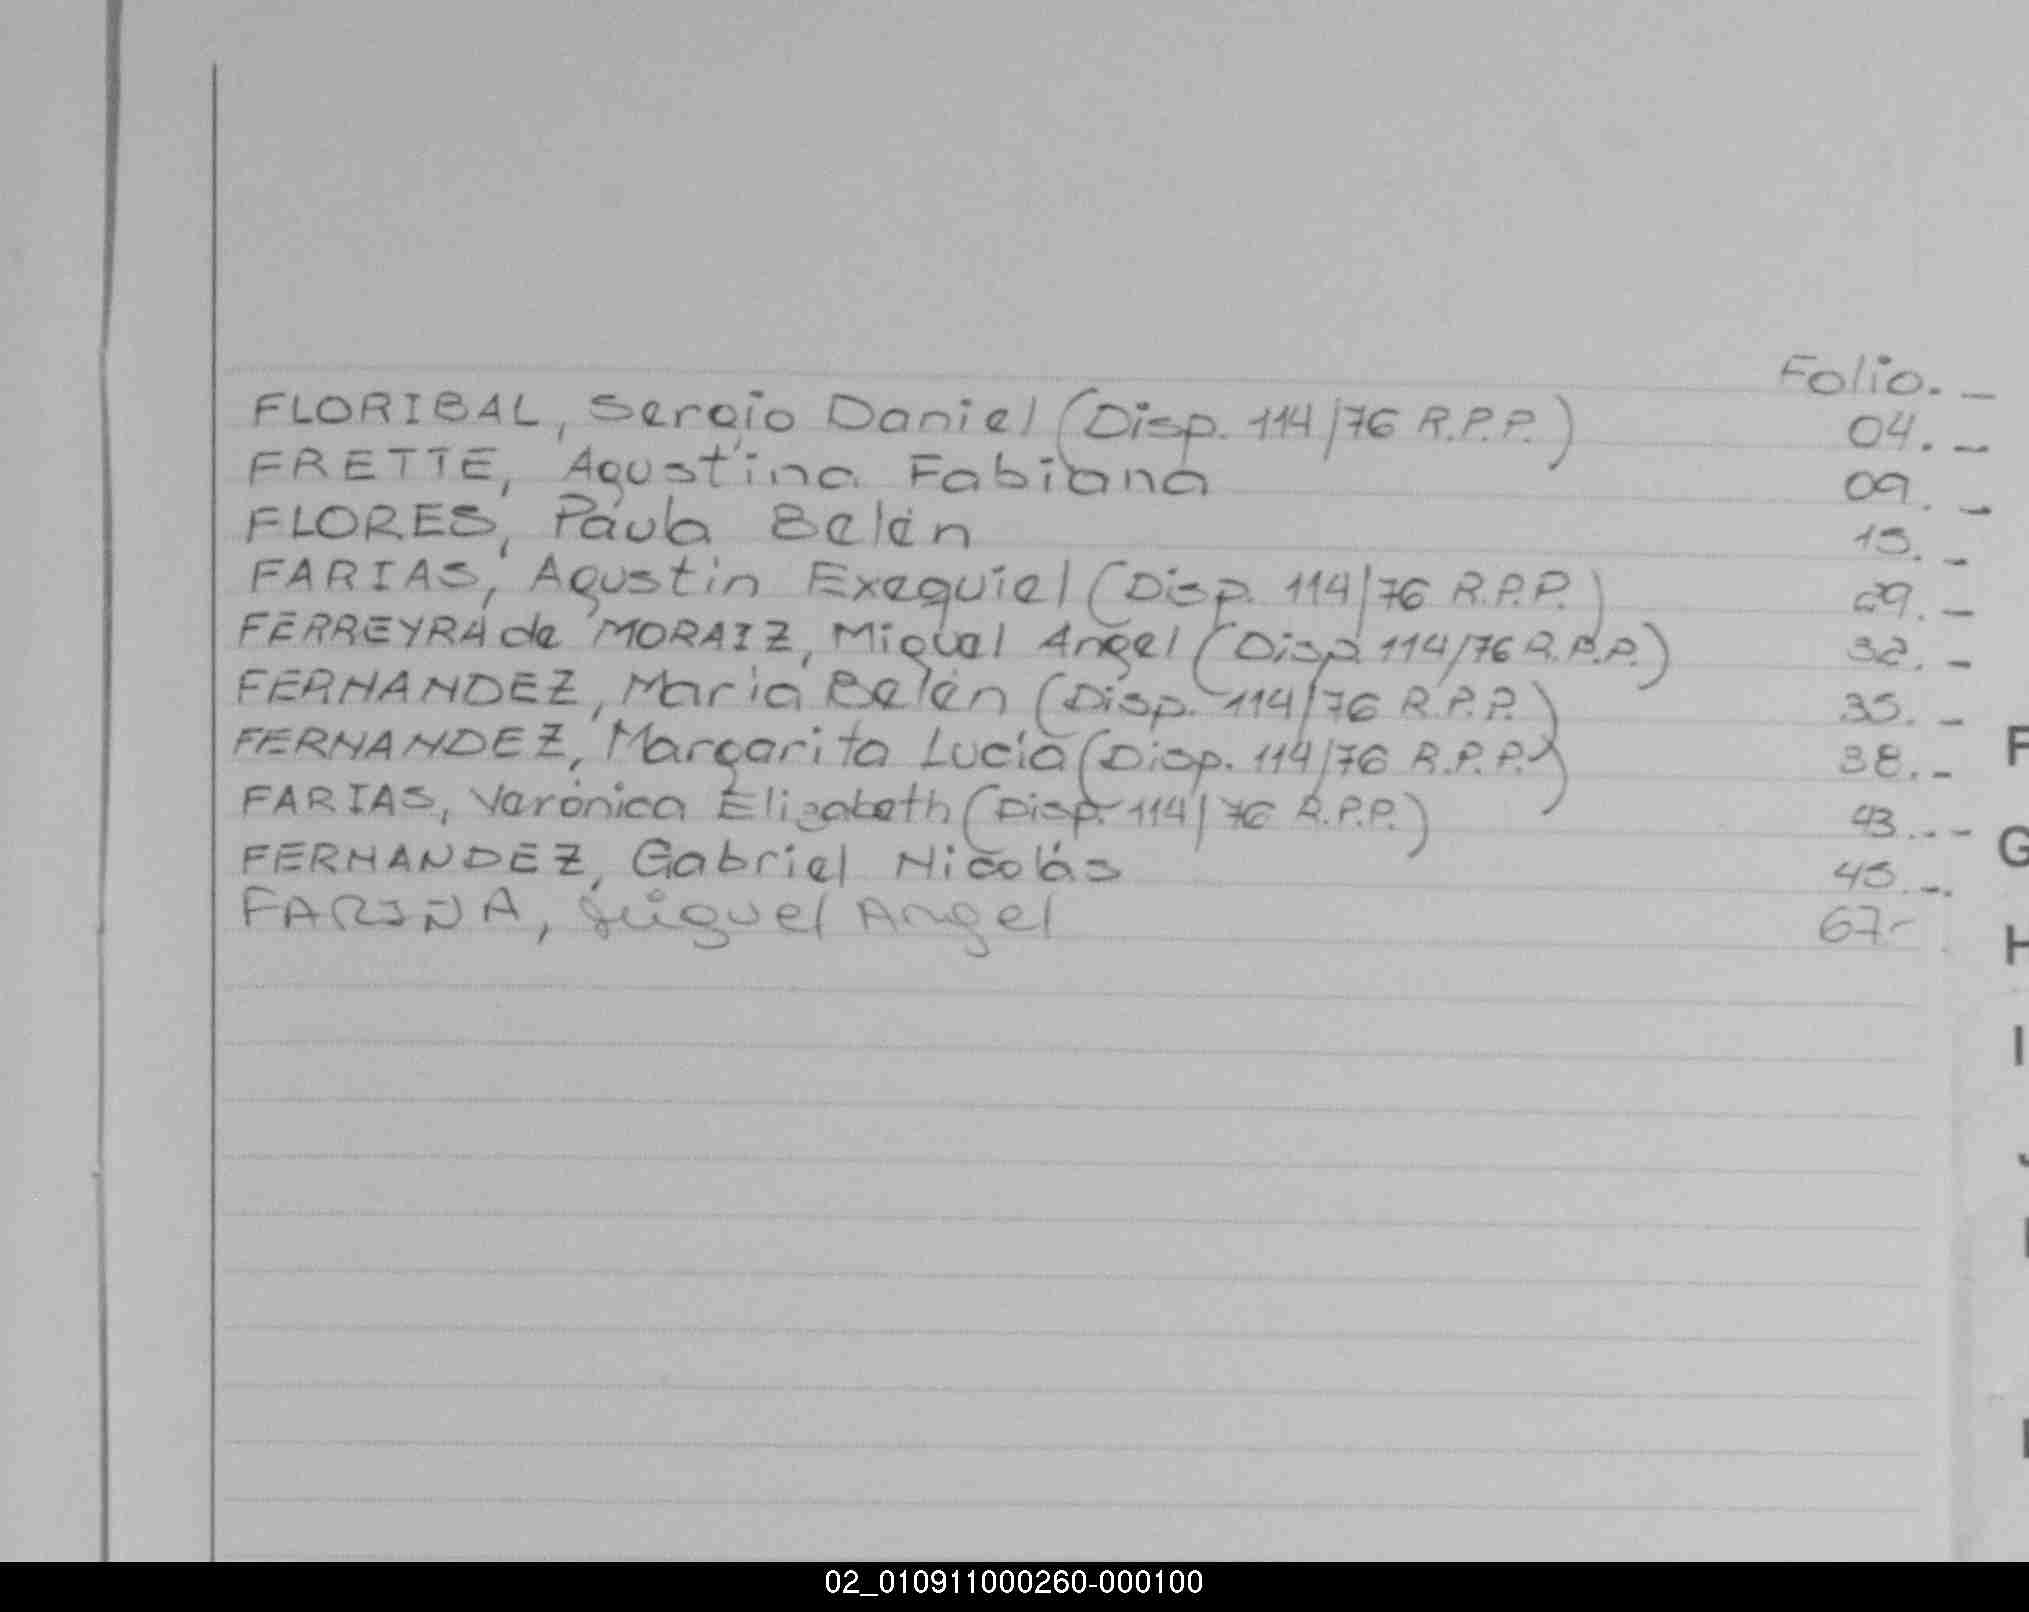 Folio. _
FLORIBAL, Sergio Daniel (Disp. 114/76 R.P.P.) 04. _
FRETTE, Agustina Fabiana 09. _
FLORES, Paula Belén 15. _
FARIAS, Agustin Exequiel (Disp. 114/76 R.P.P.) 29. _
FERREYRA de MORAIZ, Miguel Angel (Disp. 114/76 R.P.P.) 32. _
FERNANDEZ, María Belén (Disp. 114/76 R.P.P.) 35. _
FERNANDEZ, Margarita Lucía (Disp. 114/76 R.P.P.) 38. _
FARIAS, Verónica Elizabeth (Disp. 114/76 R.P.P.) 43. _
FERNANDEZ, Gabriel Nicolás 45. _
FARIÑA, Miguel Angel 67-
F
G
H
I
02_010911000260-000100